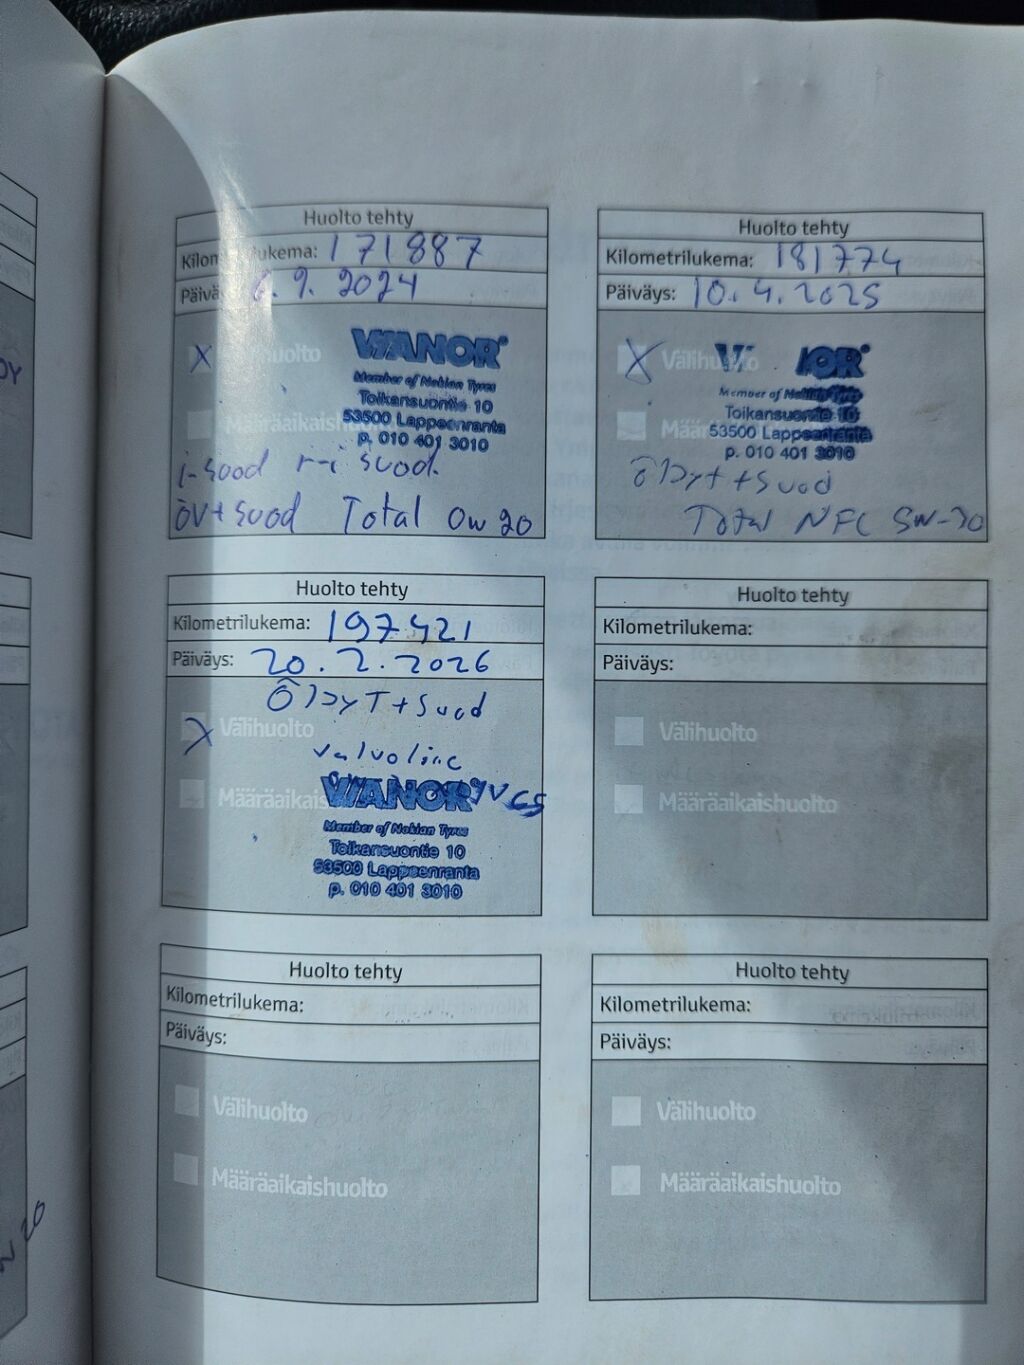 Huolto tehty
Kilometrilukema: 171887
9. 2024
X
WANOR
Member of Nokian Tyres
Toikansuontie 10
53500 Lappeenranta
p. 010 401 3010
i-suod r-i suod.
öv+suod Total 0w20
Huolto tehty
Kilometrilukema: 181774
Päiväys: 10.4.2025
X Välihuolto
Member of Nokian Tyres
Toikansuontie 10
53500 Lappeenranta
p. 010 401 3010
Öljyt+suod
Total NFC 5W-30
Huolto tehty
Kilometrilukema: 197421
Päiväys: 20.2.2026
Öljyt+suod
X Välihuolto
valvoline
WANOR
Member of Nokian Tyres
Toikansuontie 10
53500 Lappeenranta
p. 010 401 3010
Huolto tehty
Kilometrilukema:
Päiväys:
Välihuolto
Määräaikaishuolto
Huolto tehty
Kilometrilukema:
Päiväys:
Välihuolto
Määräaikaishuolto
Huolto tehty
Kilometrilukema:
Päiväys:
Välihuolto
Määräaikaishuolto